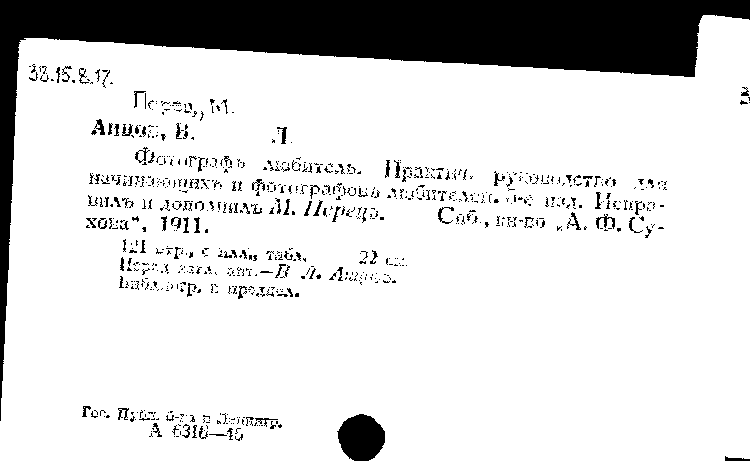 38.15.8.17.
Перец, М.
Анцов, В. Л.
Фотографъ любитель. Практич. руководство для
начинающихъ и фотографовъ любителей. 5-е изд. Испра-
вилъ и дополнилъ М. Перецъ. Спб., кн-во „А. Ф. Су-
хова", 1911.
121 стр., с илл., табл. 22 см.
Перед загл. авт.—В. Л. Анцов.
Библиогр. в предисл.
Гос. Публ. б-ка в Ленингр.
А 6316—46